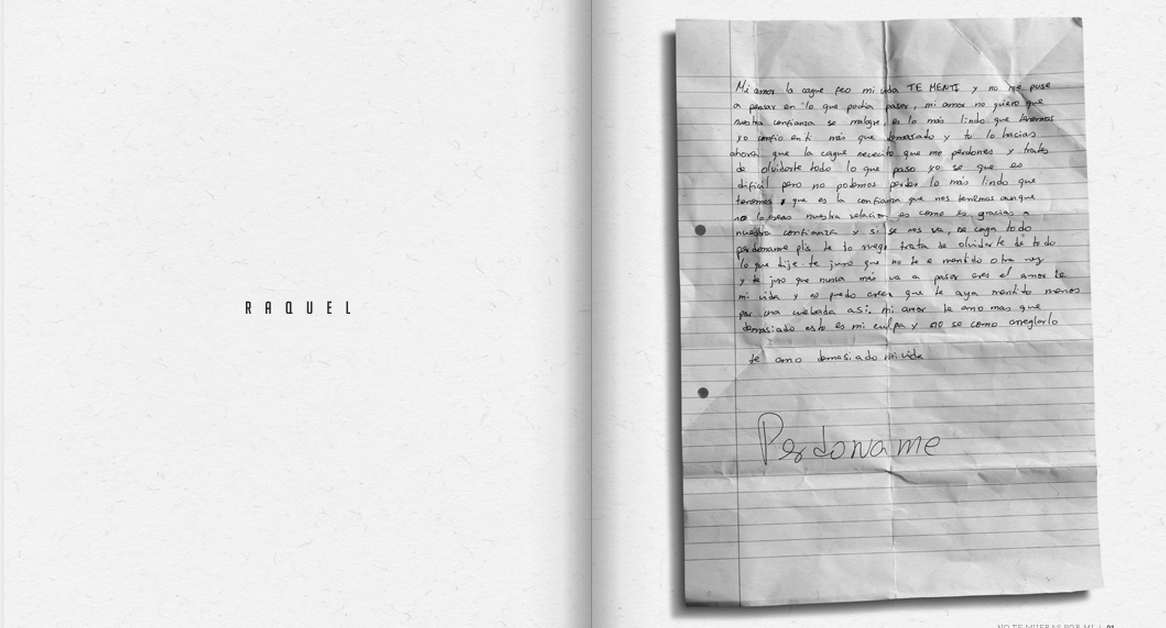 RAQUEL
Mi amor la cague peo mi vida TE MENTI y no me puse
a pensar en lo que podia pasar, mi amor no quiero que
nuestra confianza se malogre, es lo más lindo que tenemos
yo confio en ti más que demasiado y tu lo hacias
ahora que la cague nececito que me perdones y trates
de olvidarte todo lo que paso yo se que es
dificil pero no podemos perder lo más lindo que
tenemos y que es la confianza que nos tenemos aunque
no lo creas nuestra relacion es como es gracias a
nuestra confianza y si se nos va, se caga todo
perdoname plis te lo ruego trata de olvidarte de todo
lo que dije te juro que no te e mentido otra vez
y te juro que nunca más va a pasar eres el amor de
mi vida y no puedo creer que te aya mentido menos
por una webada asi. mi amor te amo mas que
demasiado esto es mi culpa y no se como arreglarlo
te amo demasiado mi vida
Perdoname
NO TE MUERAS POR MI | 01